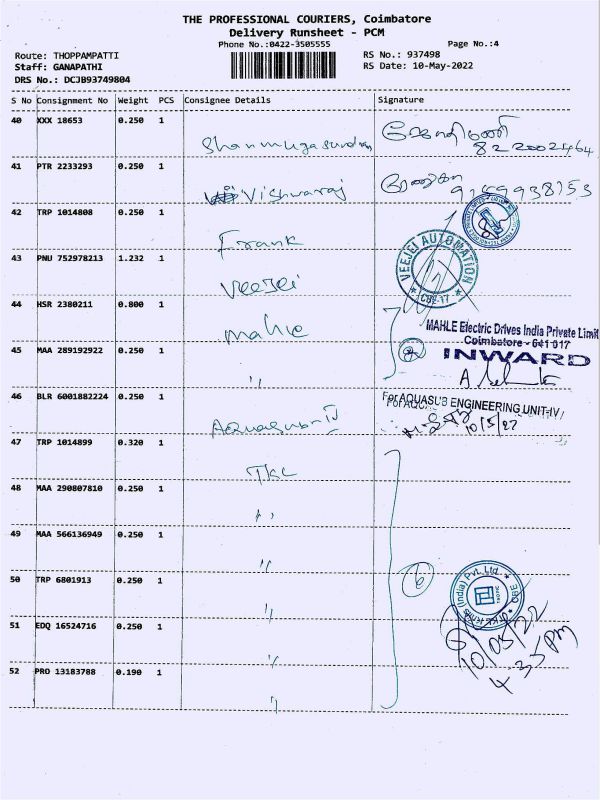 THE PROFESSIONAL COURIERS, Coimbatore
Delivery Runsheet - PCM
Phone No.:0422-3505555
Page No.:4
Route: THOPPAMPATTI
RS No.: 937498
Staff: GANAPATHI
RS Date: 10-May-2022
DRS No.: DCJB93749804
S No Consignment No Weight PCS Consignee Details Signature
40 XXX 18653 0.250 1 Shanmugasundram ஜோதிமணி
8220024 64
41 PTR 2233293 0.250 1 Vishwaraj
9159938153
42 TRP 1014808 0.250 1 Frank
43 PNU 752978213 1.232 1 Veejei
VEEJEI AUTOMATION
CBE-17
44 HSR 2380211 0.800 1 Mahle
MAHLE Electric Drives India Private Limit
Coimbatore - 641 017
45 MAA 289192922 0.250 1 "
2
INWARD
46 BLR 6001882224 0.250 1 Aquasub-IV
For AQUASUB ENGINEERING UNIT-IV
10/5/22
47 TRP 1014899 0.320 1 TKC
48 MAA 290807810 0.250 1 "
49 MAA 566136949 0.250 1 "
50 TRP 6801913 0.250 1 "
6
(India) Pvt. Ltd.
CBE
51 EDQ 16524716 0.250 1 "
10/05/22
4.35 PM
52 PRO 13183788 0.190 1 "